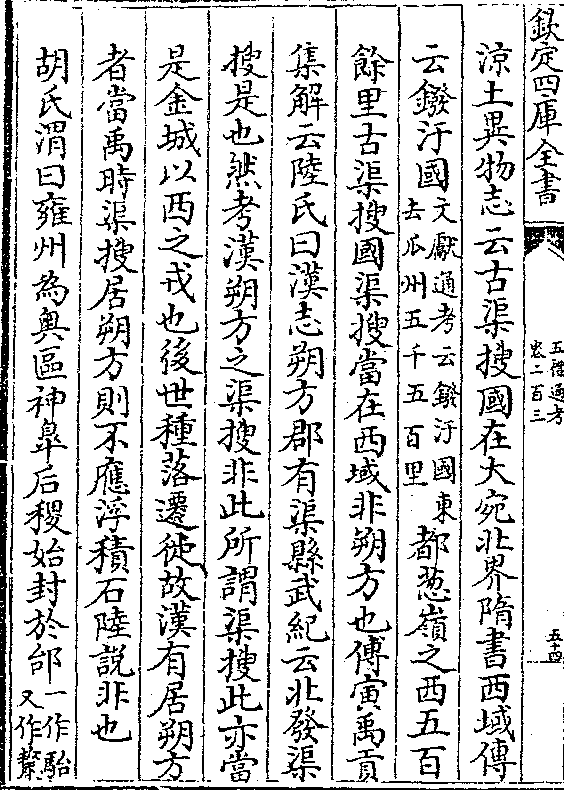 欽定四庫全書
五禮通考
卷二百三
五十四
涼土異物志云古渠搜國在大宛北界隋書西域傳
云鏺汙國文獻通考云鏺汙國東去瓜州五千五百里都葱嶺之西五百
餘里古渠搜國渠搜當在西域非朔方也傅寅禹貢
集解云陸氏曰漢志朔方郡有渠縣武紀云北發渠
搜是也然考漢朔方之渠搜非此所謂渠搜此亦當
是金城以西之戎也後世種落遷徙故漢有居朔方
者當禹時渠搜居朔方則不應浮積石陸說非也
胡氏渭曰雍州為奥區神臯后稷始封於邰一作駘又作斄